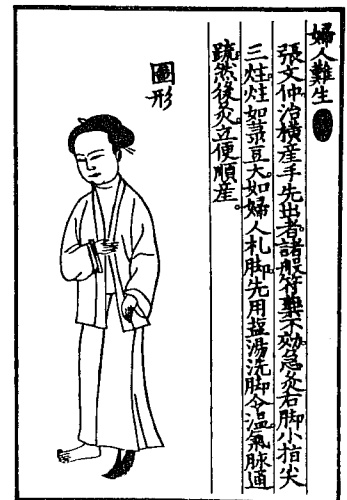 婦人難生
張文仲治横産手先出者諸般符藥不効急灸右脚小指尖
三炷炷如菉豆大如婦人札脚先用塩湯洗脚令温氣脉通
䟽然後灸立便順産
圖形